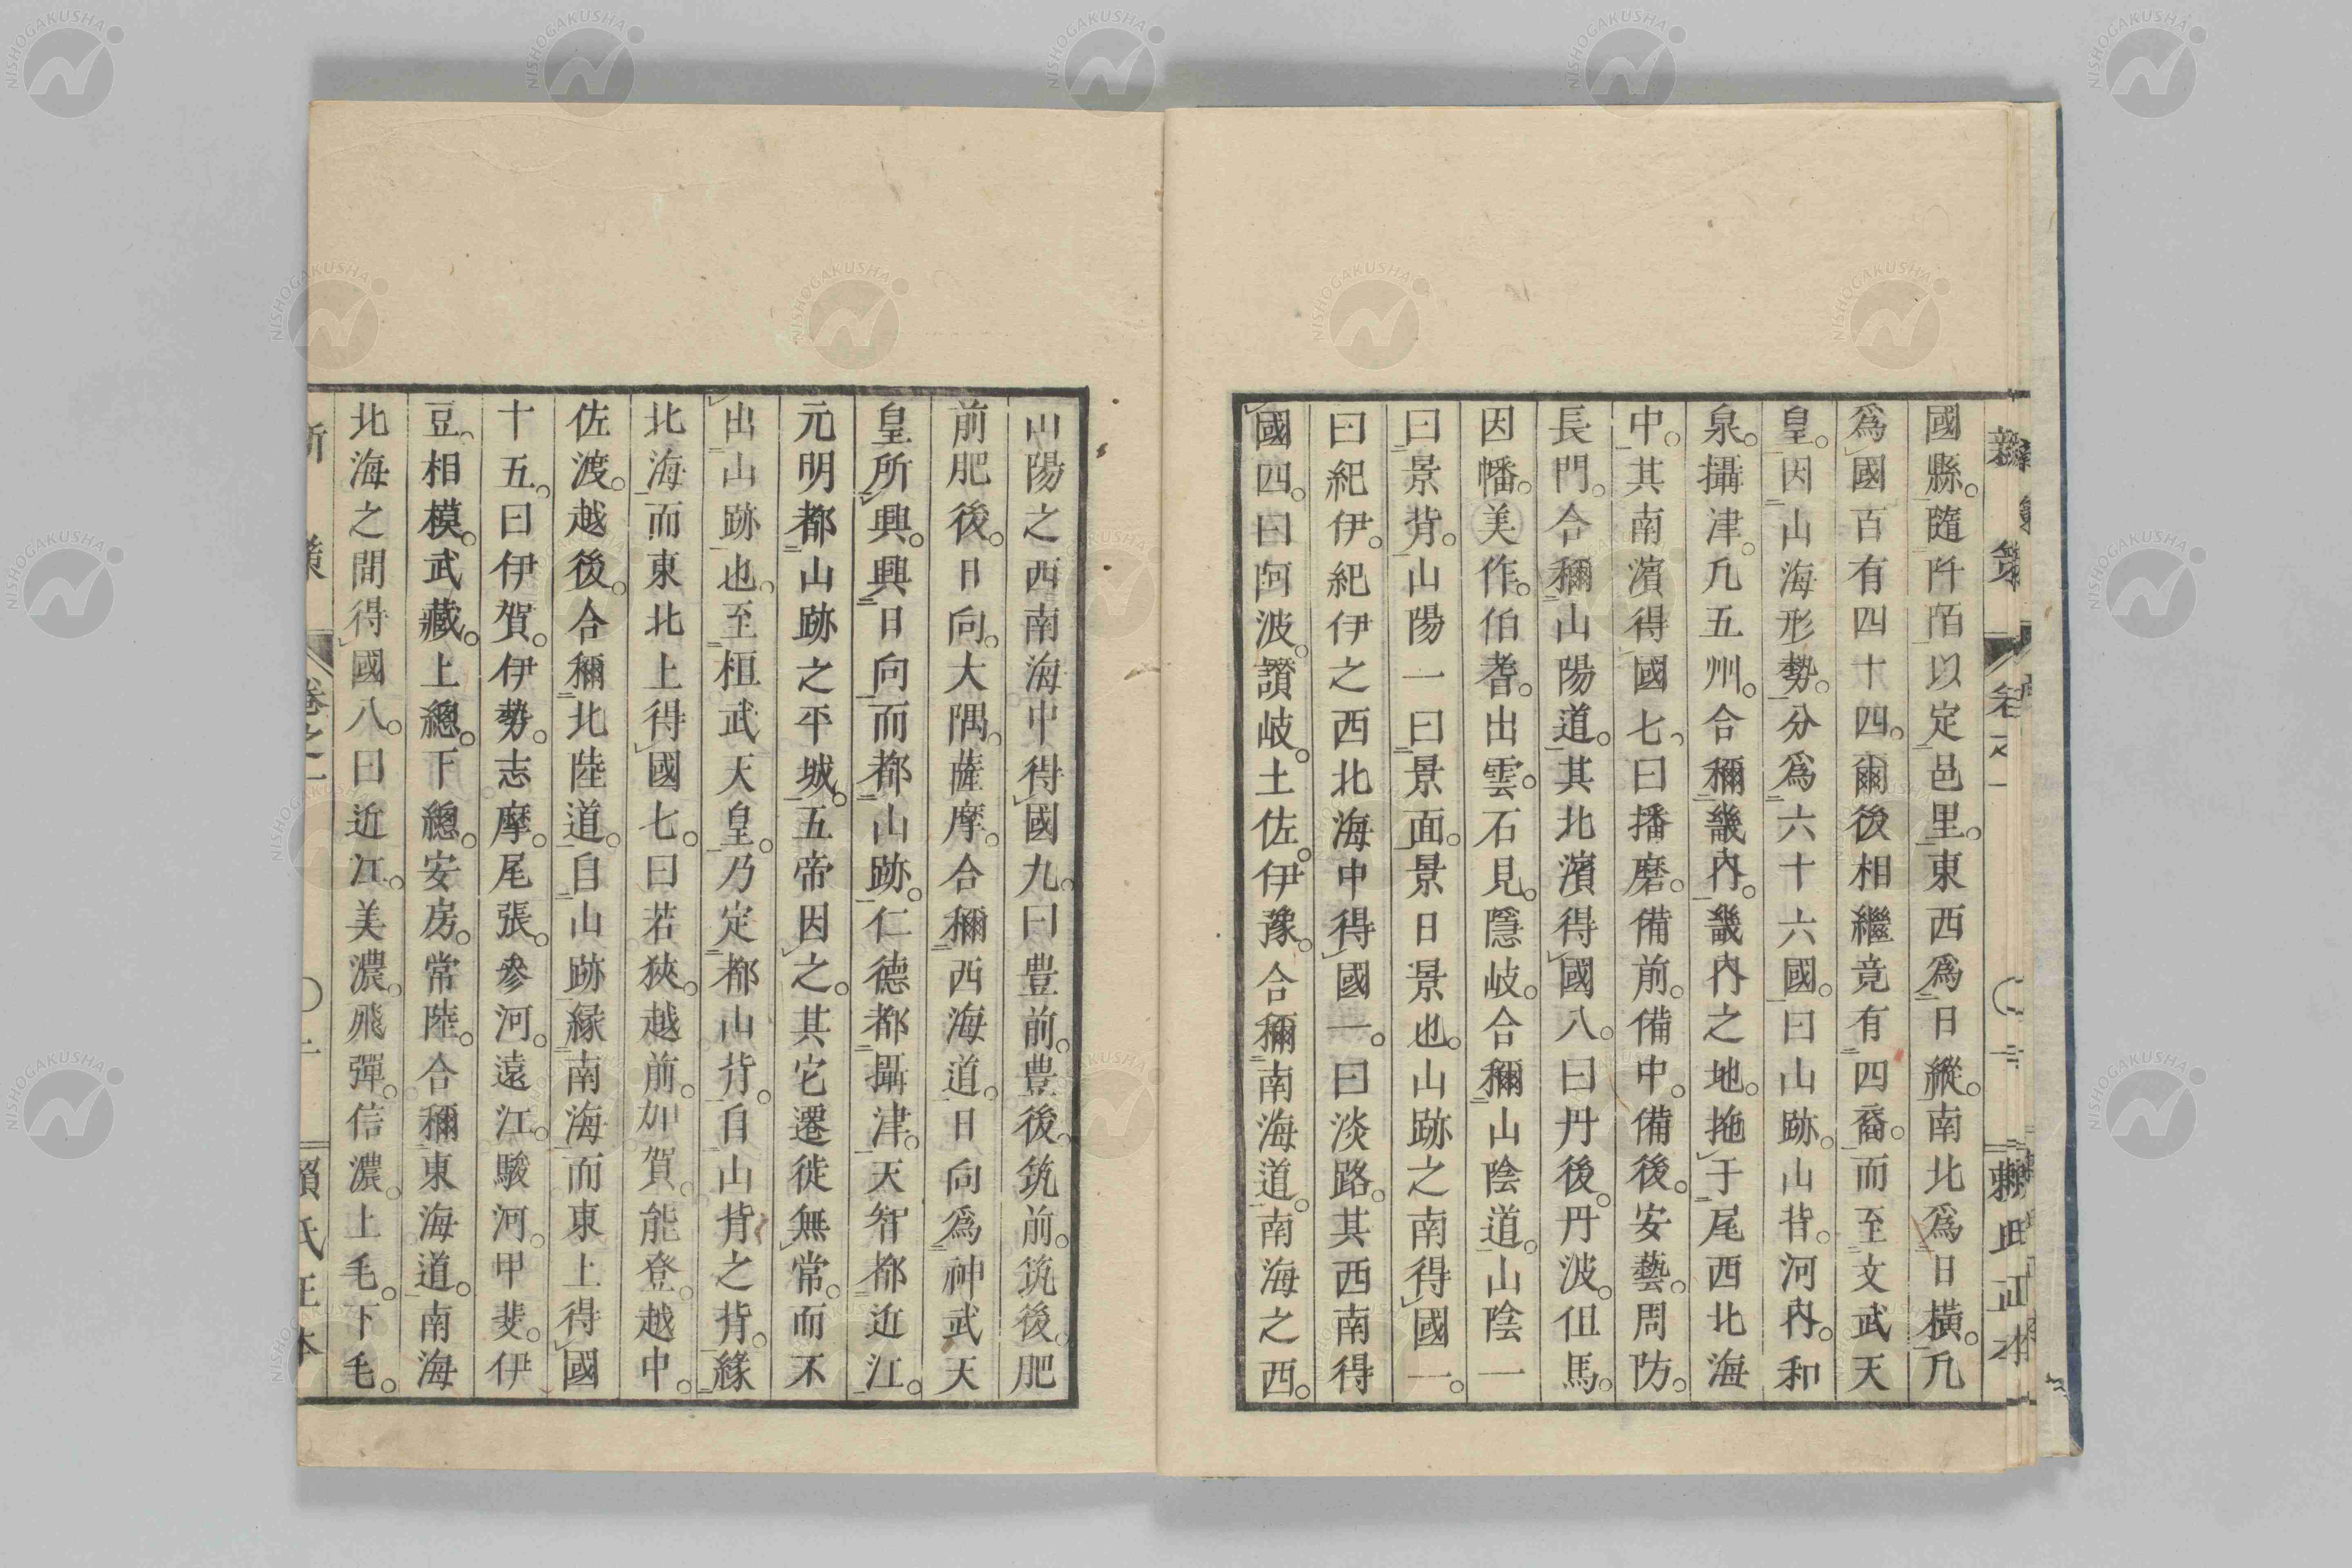 國縣。隨阡陌以定邑里。東西爲日縱。南北爲日橫。凡
爲國百有四十四。爾後相繼竟有四裔。而至文武天
皇。因山海形勢。分爲六十六國。曰山跡。山背。河內。和
泉。攝津。凡五州。合稱畿內。畿內之地。拖于尾西北海
中。其南濱得國七。曰播磨。備前。備中。備後。安藝。周防。
長門。合稱山陽道。其北濱得國八。曰丹後。丹波。但馬。
因幡。美作。伯耆。出雲。石見。隱岐。合稱山陰道。山陰一
曰景背。山陽一曰景面。景日景也。山跡之南得國一。
曰紀伊。紀伊之西北海中得國一。曰淡路。其西南得
國四。曰阿波。讃岐。土佐。伊豫。合稱南海道。南海之西。
山陽之西南海中得國九。曰豊前。豊後。筑前。筑後。肥
前肥後。日向。大隅。薩摩。合稱西海道。日向爲神武天
皇所興。興日向而都山跡。仁德都攝津。天智都近江。
元明都山跡之平城。五帝因之。其它遷徙無常。而不
出山跡也。至桓武天皇。乃定都山背。自山背之背。緣
北海而東北上得國七。曰若狹。越前。加賀。能登。越中。
佐渡。越後。合稱北陸道。自山跡緣南海而東上得國
十五。曰伊賀。伊勢。志摩。尾張。參河。遠江。駿河。甲斐。伊
豆。相模。武藏。上總。下總。安房。常陸。合稱東海道。南海
北海之間得國八。曰近江。美濃。飛彈。信濃。上毛。下毛。
新策 卷之一 賴氏正本